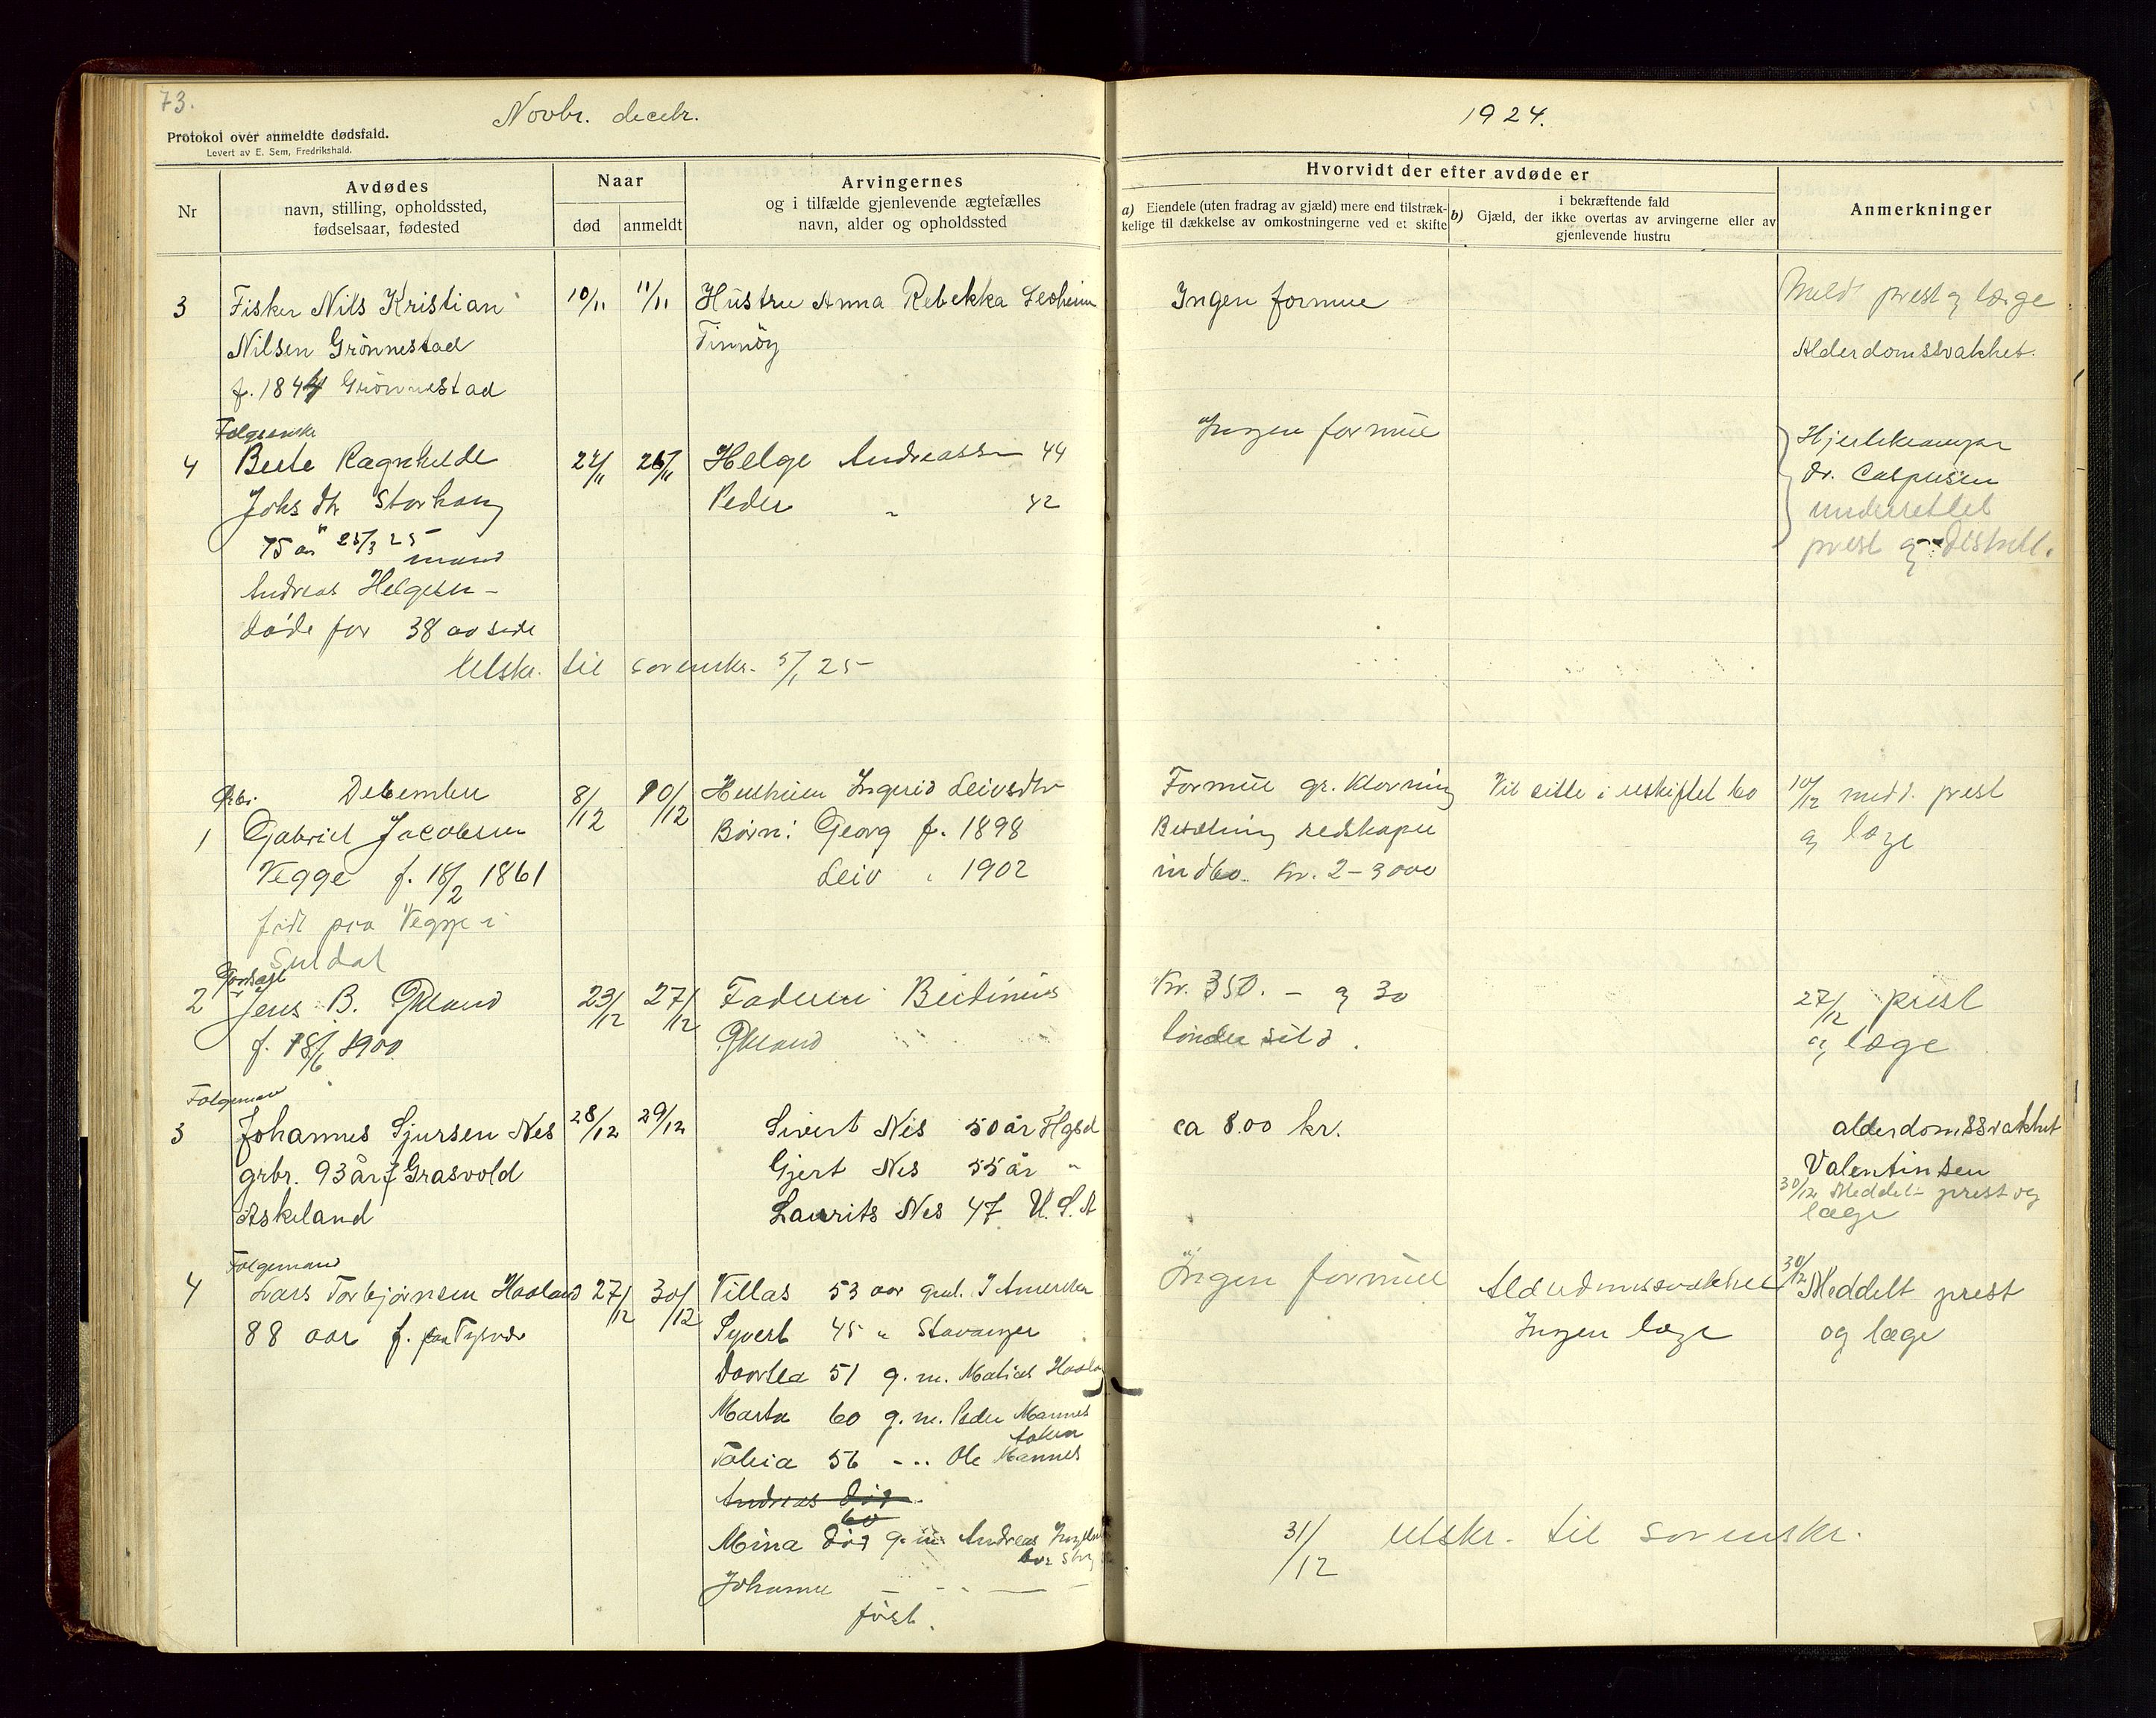 73.
Novbr. decebr.
1924.
Protokol over anmeldte dødsfald.
Levert av E. Sem, Fredrikshald.
Nr
Avdødes
navn, stilling, opholdssted,
fødselsaar, fødested
Naar
død
anmeldt
Arvingernes
og i tilfælde gjenlevende ægtefælles
navn, alder og opholdssted
Hvorvidt der efter avdøde er
a) Eiendele (uten fradrag av gjæld) mere end tilstræk-
kelige til dækkelse av omkostningerne ved et skifte
b)
i bekræftende fald
Gjæld, der ikke overtas av arvingerne eller av
gjenlevende hustru
Anmerkninger
3 Fisker Nils Kristian 10/11 11/11 Hustru Anna Rebekka Ingen formue Meld prest og læge
Nilsen Grönnestad Finnöy Alderdomssvakhet.
f. 1844 Grönnestad
4 Berte Ragnhilde 11 11 Helge Andreassen 44 Ingen formue
Johs dtr Storhaug Peder " 42 dr.
75 aar 25 underrettet
mand prest og
Andreas Helgesen -
døde for 38 aar siden
Utskr. til sorenskr. 5/1 25
December
1 Gabriel Jacobsen 8/12 10/12 Ingrid Leivsdtr Formue gr. Klovning Vil sitte i uskiftet bo 10/12 medd. prest
Vegge f. 18/2 1861 Børn: Georg f. 1898 Besætning redskaper og læge
Leiv " 1902 indbo. Kr. 2-3000
født paa Vegge i
Suldal
2 Jens B. 23/12 27/12 Faderen Kr. 350. - og 30 27/12 prest
f. 18/6 1900 tønder sild. og læge
Folgemand
3 Johannes Sjursen Nes 28/12 29/12 Sivert Nes 50 år Hgsd ca 800 kr. alderdomssvakhet
grbr. 93 år f Grasvold Gjert Nes 55 år " Valentinsen
Askeland Laurits Nes 47 U.S.A 30/12 Meddelt prest og
læge
Folgemand
4 Lars Torbjørnsen Haaland 27/12 30/12 Villas 53 aar gml. I Amerika Ingen formue Alderdomssvakhet 30/12 Meddelt prest
88 aar f. paa Tysvær Syvert 45 " Stavanger Ingen læge og læge
51 g. m. Matias
Marta 60 g. m. Peder Mannes
56 - .. Ole Mannes
Andreas død
60
Mina død g. m. Andreas
Johanne - - - -
først.
31/12 Utskr. til sorenskr.